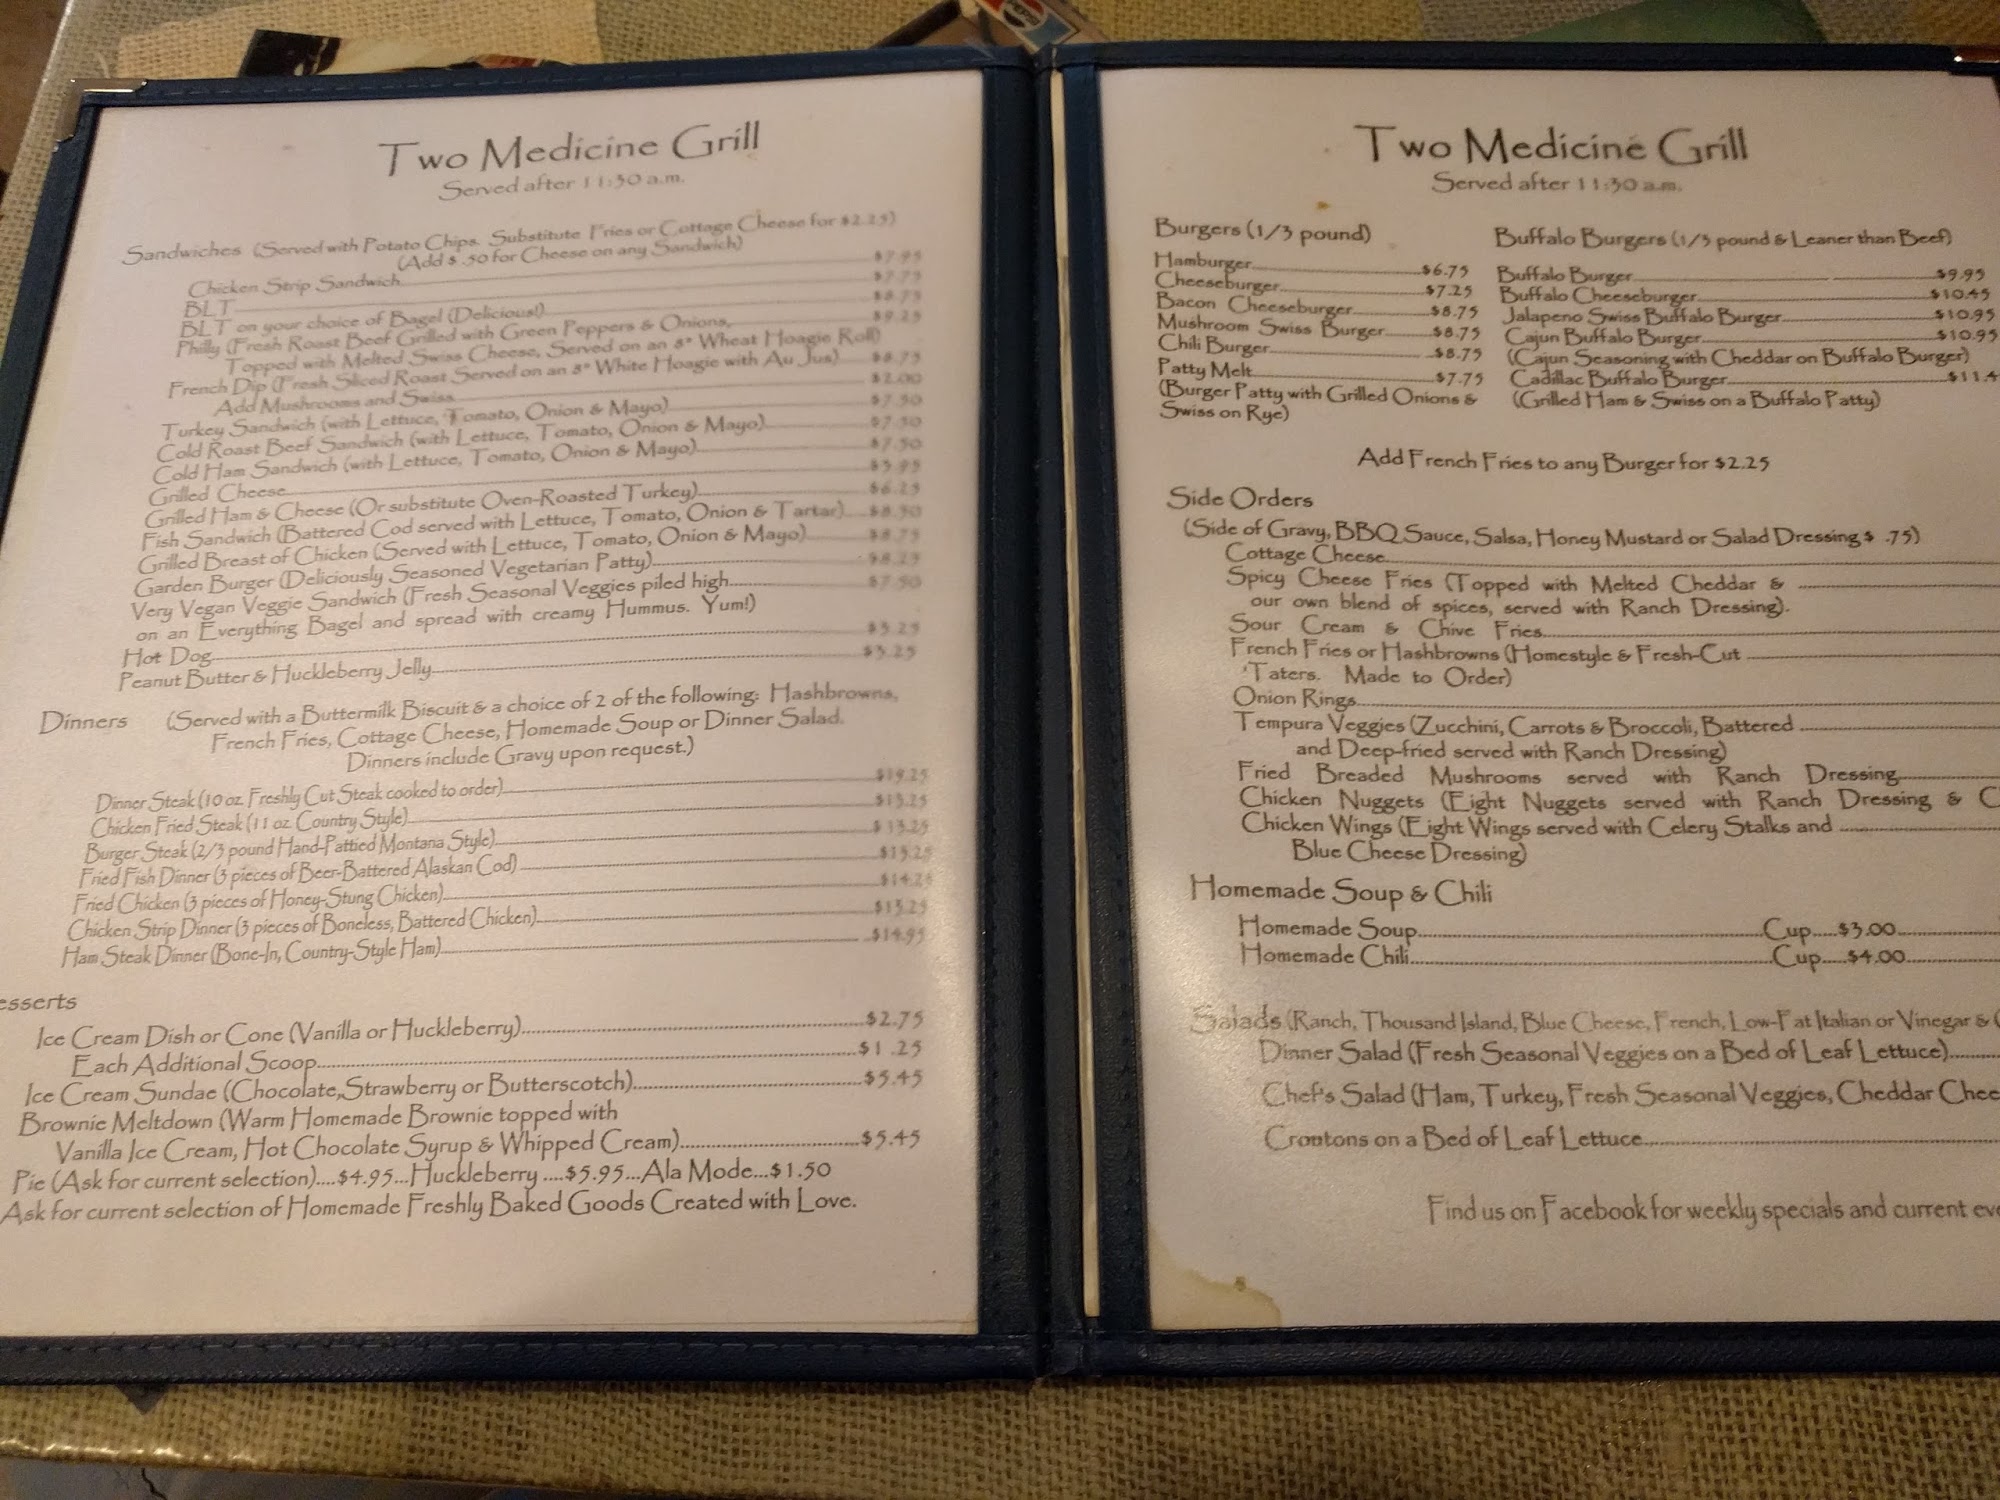 Two Medicine Grill
Served after 11:30 a.m.
Sandwiches (Served with Potato Chips. Substitute Fries or Cottage Cheese for $2.25)
(Add $ .50 for Cheese on any Sandwich)
Chicken Strip Sandwich $7.95
BLT $7.75
BLT on your choice of Bagel (Delicious!) $8.75
Philly (Fresh Roast Beef Grilled with Green Peppers & Onions, $9.25
Topped with Melted Swiss Cheese, Served on an 8" Wheat Hoagie Roll)
French Dip (Fresh Sliced Roast Served on an 8" White Hoagie with Au Jus) $8.75
Add Mushrooms and Swiss $2.00
Turkey Sandwich (with Lettuce, Tomato, Onion & Mayo) $7.50
Cold Roast Beef Sandwich (with Lettuce, Tomato, Onion & Mayo) $7.50
Cold Ham Sandwich (with Lettuce, Tomato, Onion & Mayo) $7.50
Grilled Cheese $5.95
Grilled Ham & Cheese (Or substitute Oven-Roasted Turkey) $6.25
Fish Sandwich (Battered Cod served with Lettuce, Tomato, Onion & Tartar) $8.50
Grilled Breast of Chicken (Served with Lettuce, Tomato, Onion & Mayo) $8.75
Garden Burger (Deliciously Seasoned Vegetarian Patty) $8.25
Very Vegan Veggie Sandwich (Fresh Seasonal Veggies piled high $7.50
on an Everything Bagel and spread with creamy Hummus. Yum!)
Hot Dog
Peanut Butter & Huckleberry Jelly
Dinners (Served with a Buttermilk Biscuit & a choice of 2 of the following: Hashbrowns,
French Fries, Cottage Cheese, Homemade Soup or Dinner Salad.
Dinners include Gravy upon request.)
Dinner Steak (10 oz. Freshly Cut Steak cooked to order) $19.25
Chicken Fried Steak (11 oz. Country Style)
Burger Steak (2/3 pound Hand-Pattied Montana Style)
Fried Fish Dinner (3 pieces of Beer-Battered Alaskan Cod)
Fried Chicken (3 pieces of Honey-Stung Chicken) $14.25
Chicken Strip Dinner (3 pieces of Boneless, Battered Chicken)
Ham Steak Dinner (Bone-In, Country-Style Ham) $14.95
esserts
Ice Cream Dish or Cone (Vanilla or Huckleberry) $2.75
Each Additional Scoop $1.25
Ice Cream Sundae (Chocolate,Strawberry or Butterscotch) $5.45
Brownie Meltdown (Warm Homemade Brownie topped with
Vanilla Ice Cream, Hot Chocolate Syrup & Whipped Cream) $5.45
Pie (Ask for current selection)....$4.95...Huckleberry ....$5.95...Ala Mode...$1.50
Ask for current selection of Homemade Freshly Baked Goods Created with Love.
Two Medicine Grill
Served after 11:30 a.m.
Burgers (1/3 pound)
Hamburger $6.75
Cheeseburger $7.25
Bacon Cheeseburger $8.75
Mushroom Swiss Burger $8.75
Chili Burger $8.75
Patty Melt $7.75
(Burger Patty with Grilled Onions &
Swiss on Rye)
Buffalo Burgers (1/3 pound & Leaner than Beef)
Buffalo Burger $9.95
Buffalo Cheeseburger $10.45
Jalapeno Swiss Buffalo Burger $10.95
Cajun Buffalo Burger $10.95
(Cajun Seasoning with Cheddar on Buffalo Burger)
Cadillac Buffalo Burger $11.4
(Grilled Ham & Swiss on a Buffalo Patty)
Add French Fries to any Burger for $2.25
Side Orders
(Side of Gravy, BBQ Sauce, Salsa, Honey Mustard or Salad Dressing $ .75)
Cottage Cheese
Spicy Cheese Fries (Topped with Melted Cheddar &
our own blend of spices, served with Ranch Dressing).
Sour Cream & Chive Fries
French Fries or Hashbrowns (Homestyle & Fresh-Cut
'Taters. Made to Order)
Onion Rings
Tempura Veggies (Zucchini, Carrots & Broccoli, Battered
and Deep-fried served with Ranch Dressing)
Fried Breaded Mushrooms served with Ranch Dressing
Chicken Nuggets (Eight Nuggets served with Ranch Dressing &
Chicken Wings (Eight Wings served with Celery Stalks and
Blue Cheese Dressing)
Homemade Soup & Chili
Homemade Soup Cup $3.00
Homemade Chili Cup $4.00
Salads (Ranch, Thousand Island, Blue Cheese, French, Low-Fat Italian or Vinegar &
Dinner Salad (Fresh Seasonal Veggies on a Bed of Leaf Lettuce)
Chef's Salad (Ham, Turkey, Fresh Seasonal Veggies, Cheddar Chee
Croutons on a Bed of Leaf Lettuce
Find us on Facebook for weekly specials and current eve